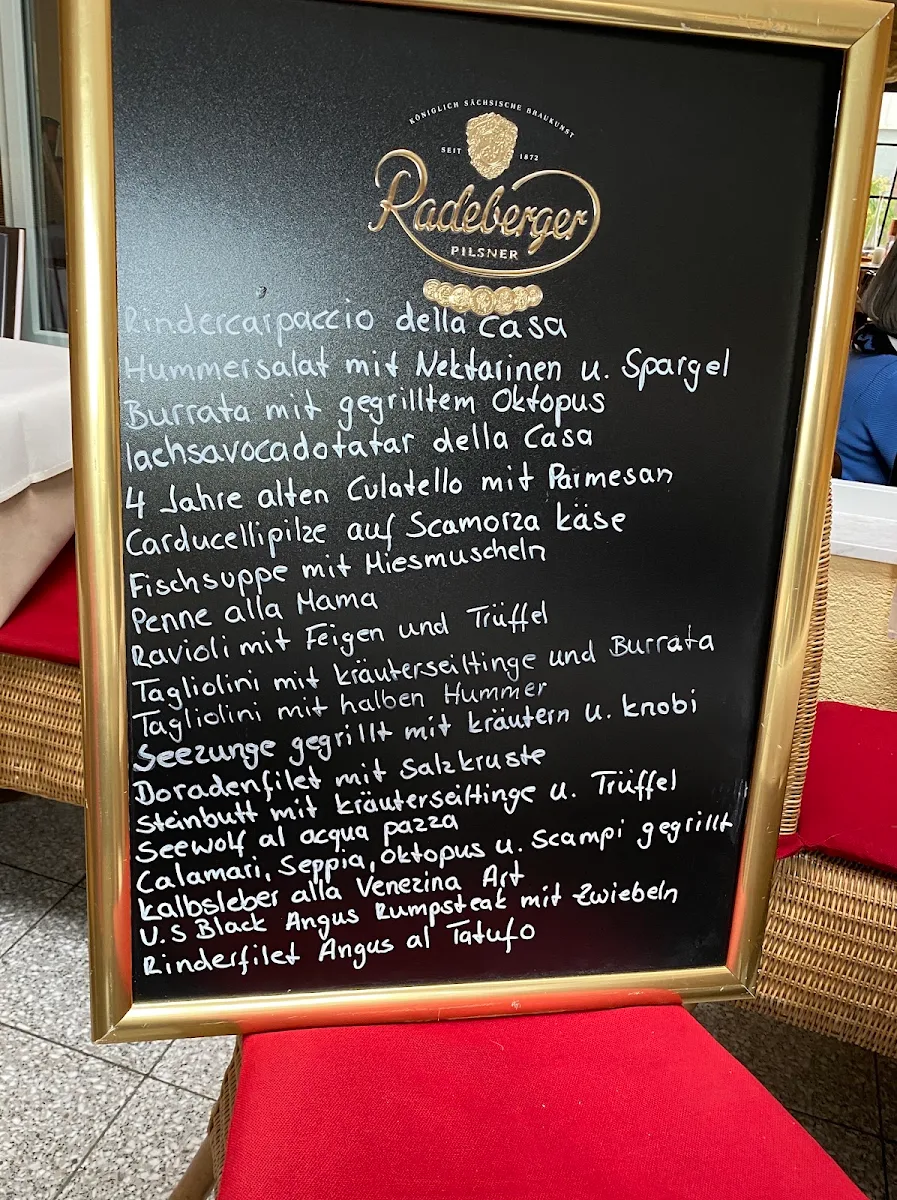 KÖNIGLICH SÄCHSISCHE BRAUKUNST
SEIT 1872
Radeberger
PILSNER
Rindercarpaccio della Casa
Hummersalat mit Nektarinen u. Spargel
Burrata mit gegrilltem Oktopus
lachsavocadotatar della Casa
4 Jahre alten Culatello mit Parmesan
Carducellipilze auf Scamorza käse
Fischsuppe mit Miesmuscheln
Penne alla Mama
Ravioli mit Feigen und Trüffel
Tagliolini mit kräuterseiltinge und Burrata
Tagliolini mit halben Hummer
Seezunge gegrillt mit kräutern u. knobi
Doradenfilet mit Salzkruste
Steinbutt mit kräuterseiltinge u. Trüffel
Seewolf al acqua pazza
Calamari, Seppia, Oktopus u. Scampi gegrillt
kalbsleber alla Venezina Art
U.S Black Angus Rumpsteak mit Zwiebeln
Rinderfilet Angus al Tatufo